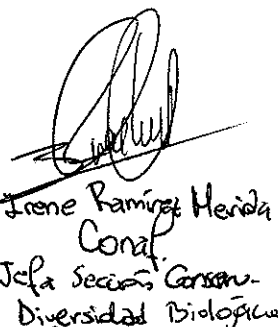 Irene Ramírez Merida
Conaf.
Jefa Sección Conserv.
Diversidad Biológica